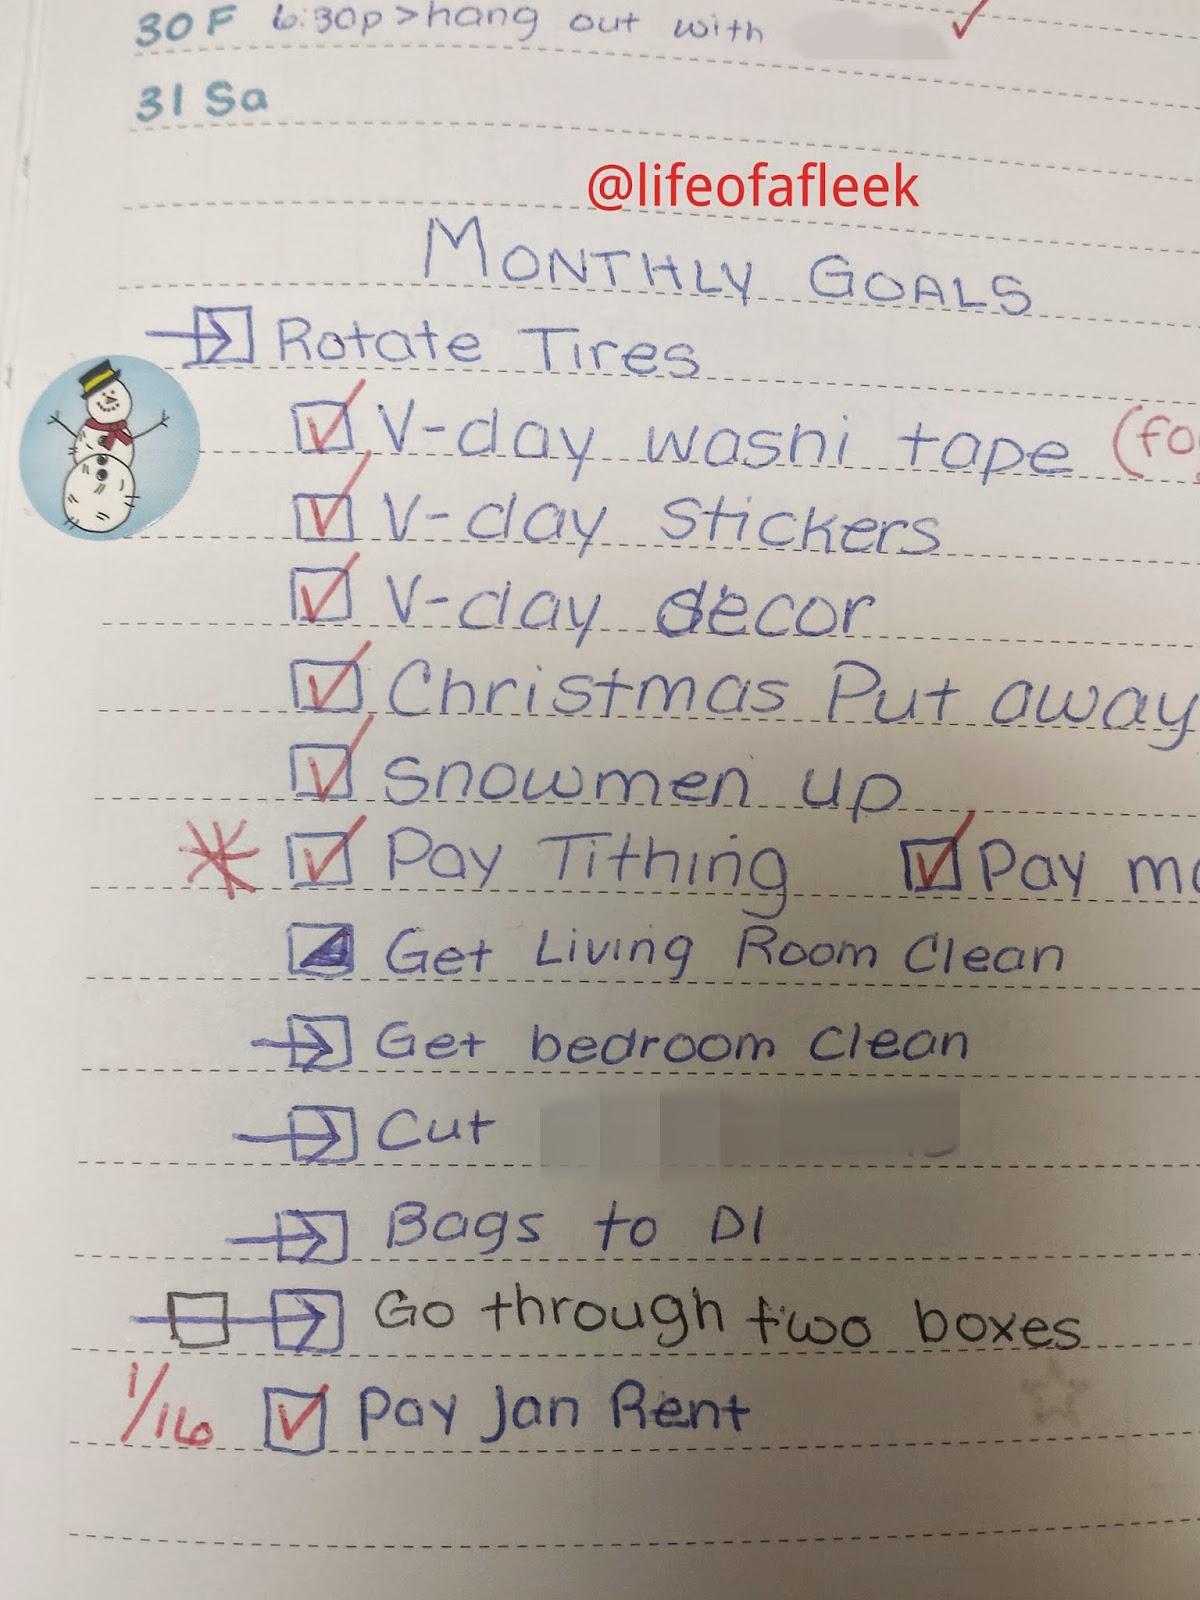 30 F 6:30p > hang out with
31 Sa
@lifeofafleek
MONTHLY GOALS
Rotate Tires
V-day washi tape
V-day stickers
V-day decor
Christmas Put away
snowmen up
Pay Tithing Pay
Get Living Room Clean
Get bedroom clean
Cut
Bags to DI
Go through two boxes
1/16 Pay Jan Rent